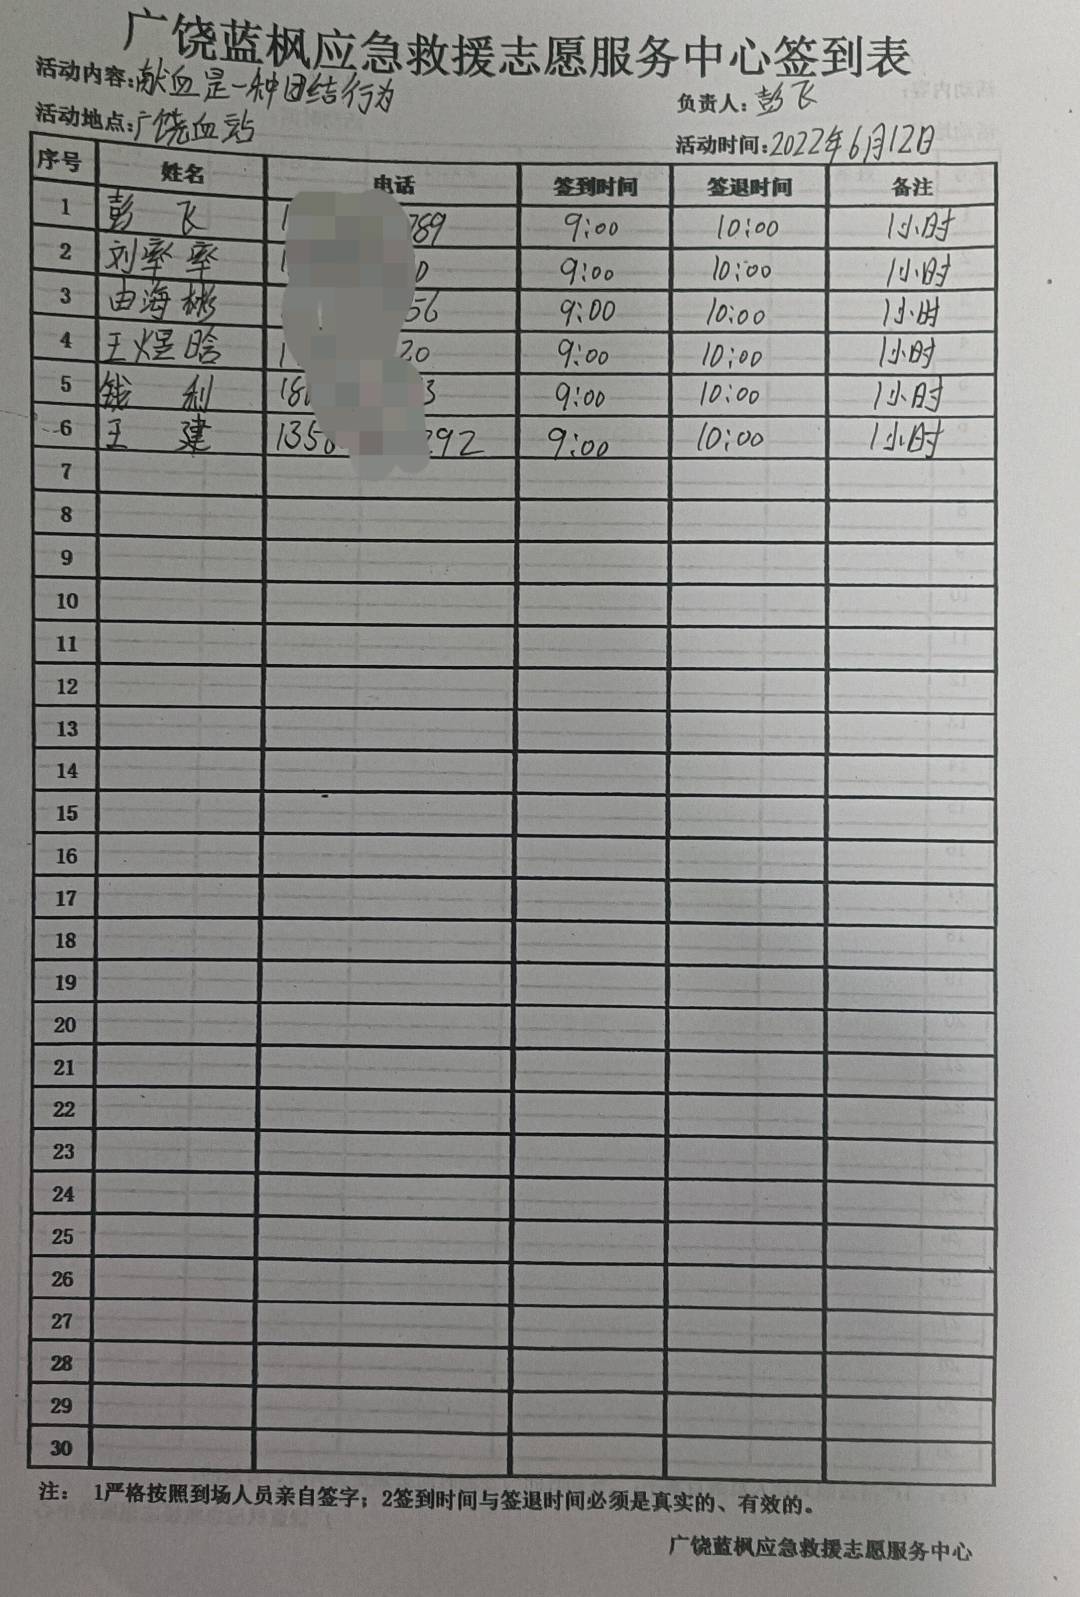 广饶蓝枫应急救援志愿服务中心签到表
活动内容:献血是一种团结行为
负责人:彭飞
活动地点:广饶血站
活动时间:2022年6月12日
序号 姓名 电话 签到时间 签退时间 备注
1 彭飞 1 789 9:00 10:00 1小时
2 刘翠翠 1 0 9:00 10:00 1小时
3 由海彬 56 9:00 10:00 1小时
4 王煜晗 1 20 9:00 10:00 1小时
5 钱利 18 3 9:00 10:00 1小时
6 王建 1350 292 9:00 10:00 1小时
7
8
9
10
11
12
13
14
15
16
17
18
19
20
21
22
23
24
25
26
27
28
29
30
注: 1严格按照到场人员亲自签字;2签到时间与签退时间必须是真实的、有效的。
广饶蓝枫应急救援志愿服务中心